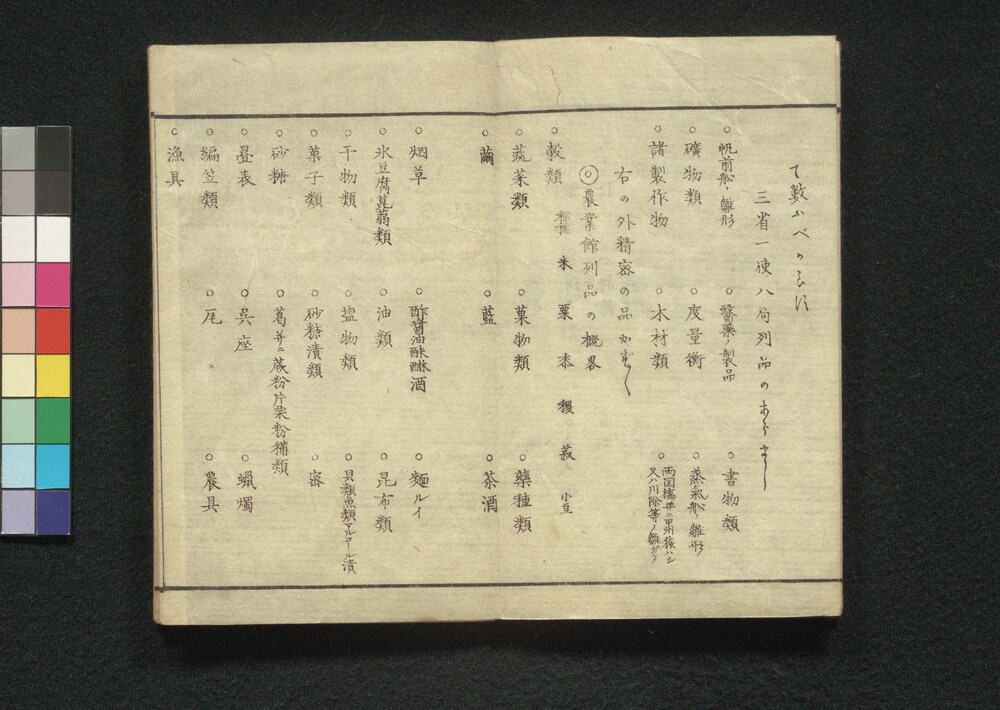 て数ふべからず
三省一使八局列品のあらまし
○帆前舩ノ雛形 ○醫藥ノ製品 ○書物類
○礦物類 ○度量衡 ○蒸氣舩ノ雛形
○諸製作物 ○木材類 ○両国橋并ニ甲州猿ハシ又ハ川除等ノ雛ガタ
右の外精密の品かず〱
◎農業館列品の概畧
○穀類 米 粟 黍 稷 菽 小豆
○蔬菜類 ○菓物類 ○藥種類
○繭 ○藍 ○茶酒
○烟草 ○酢醤油味醂酒 ○麺ルイ
○氷豆腐蒟蒻類 ○油類 ○昆布類
○干物類 ○塩物類 ○貝類魚類アルコール漬
○菓子類 ○砂糖漬類 ○蜜
○砂糖 ○葛并ニ蕨粉片栗粉類
○畳表 ○呉座 ○蝋燭
○編笠類 ○瓦 ○農具
○漁具